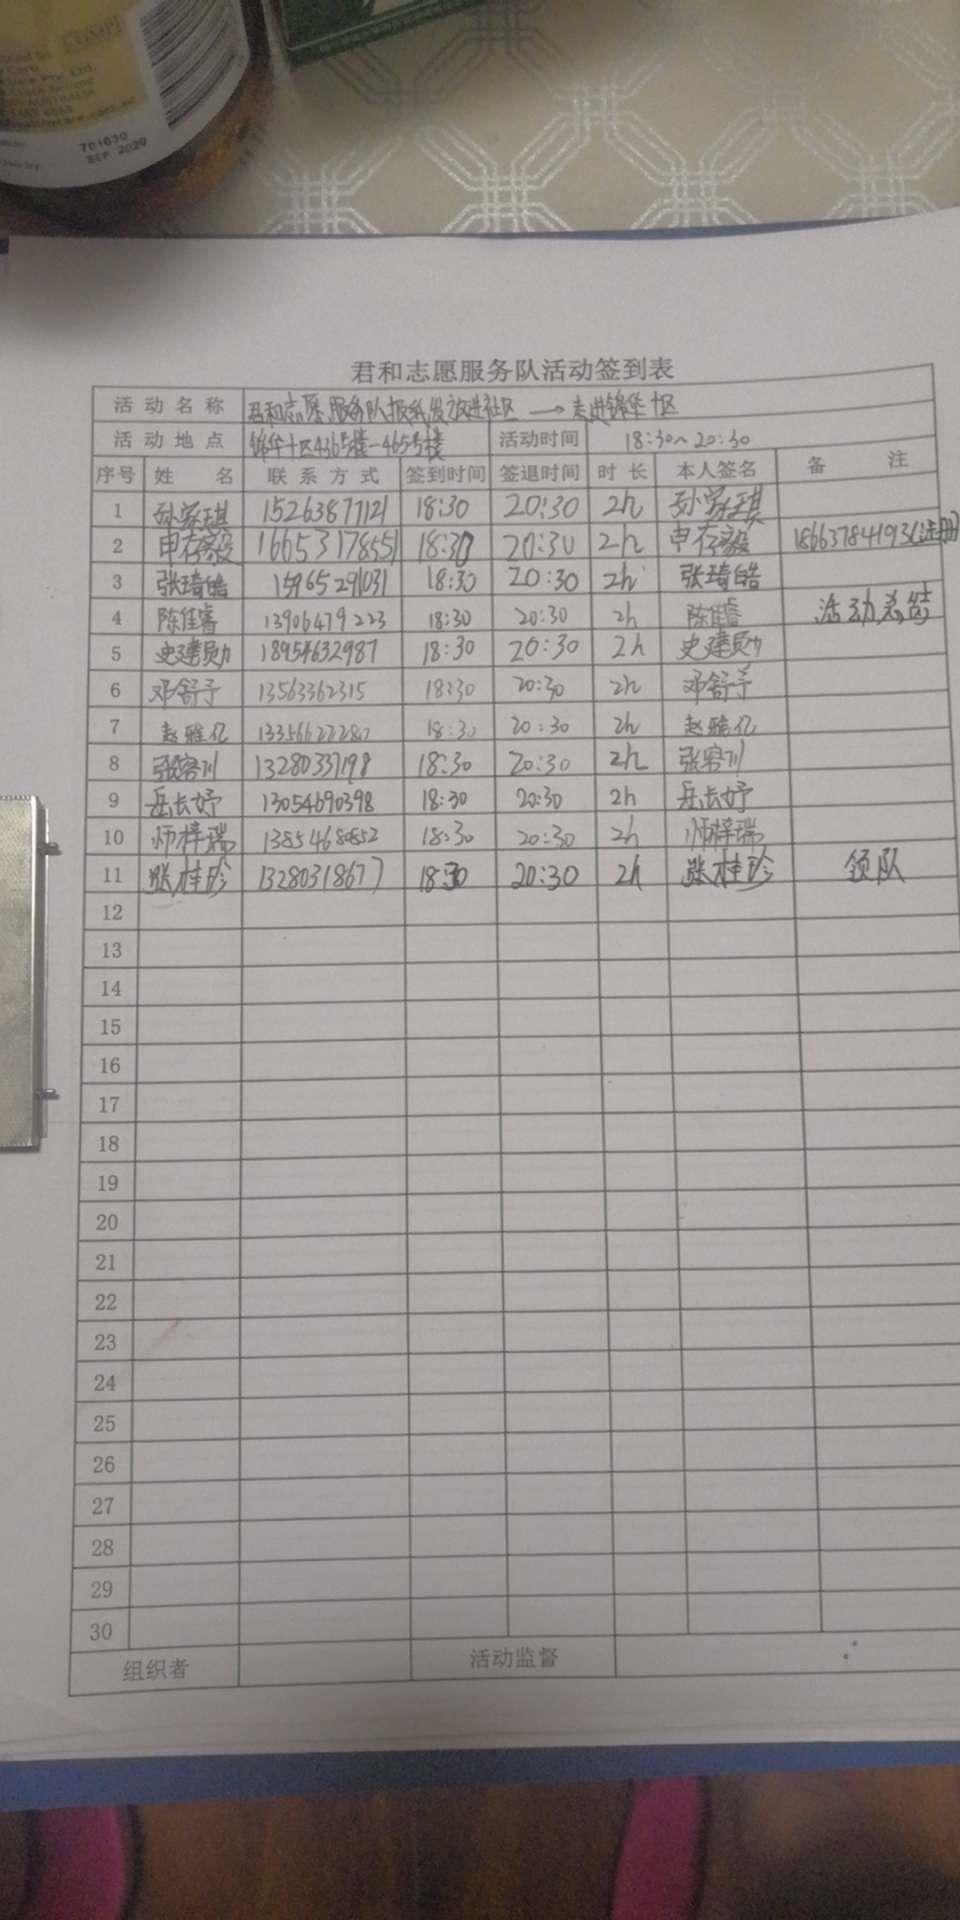 701630
SEP 2020
君和志愿服务队活动签到表
活动名称 君和志愿服务队报纸发放进社区 → 走进锦华十区
活动地点 锦华十区436号楼-465号楼 活动时间 18:30~20:30
序号 姓名 联系方式 签到时间 签退时间 时长 本人签名 备注
1 孙家琪 15263877121 18:30 20:30 2h 孙家琪
2 申存毅 16653178551 18:30 20:30 2h 申存毅 18663784193(注册)
3 张琦皓 15965291031 18:30 20:30 2h 张琦皓
4 陈佳睿 13906479223 18:30 20:30 2h 陈佳睿 活动总结
5 史建勋 18954632987 18:30 20:30 2h 史建勋
6 邓舒予 13563362315 18:30 20:30 2h 邓舒予
7 赵雅亿 18:30 20:30 2h 赵雅亿
8 张容川 13280337198 18:30 20:30 2h 张容川
9 岳长妤 13054690398 18:30 20:30 2h 岳长妤
10 师梓瑞 13854680852 18:30 20:30 2h 师梓瑞
11 张桂珍 13280318677 18:30 20:30 2h 张桂珍 领队
12
13
14
15
16
17
18
19
20
21
22
23
24
25
26
27
28
29
30
组织者 活动监督